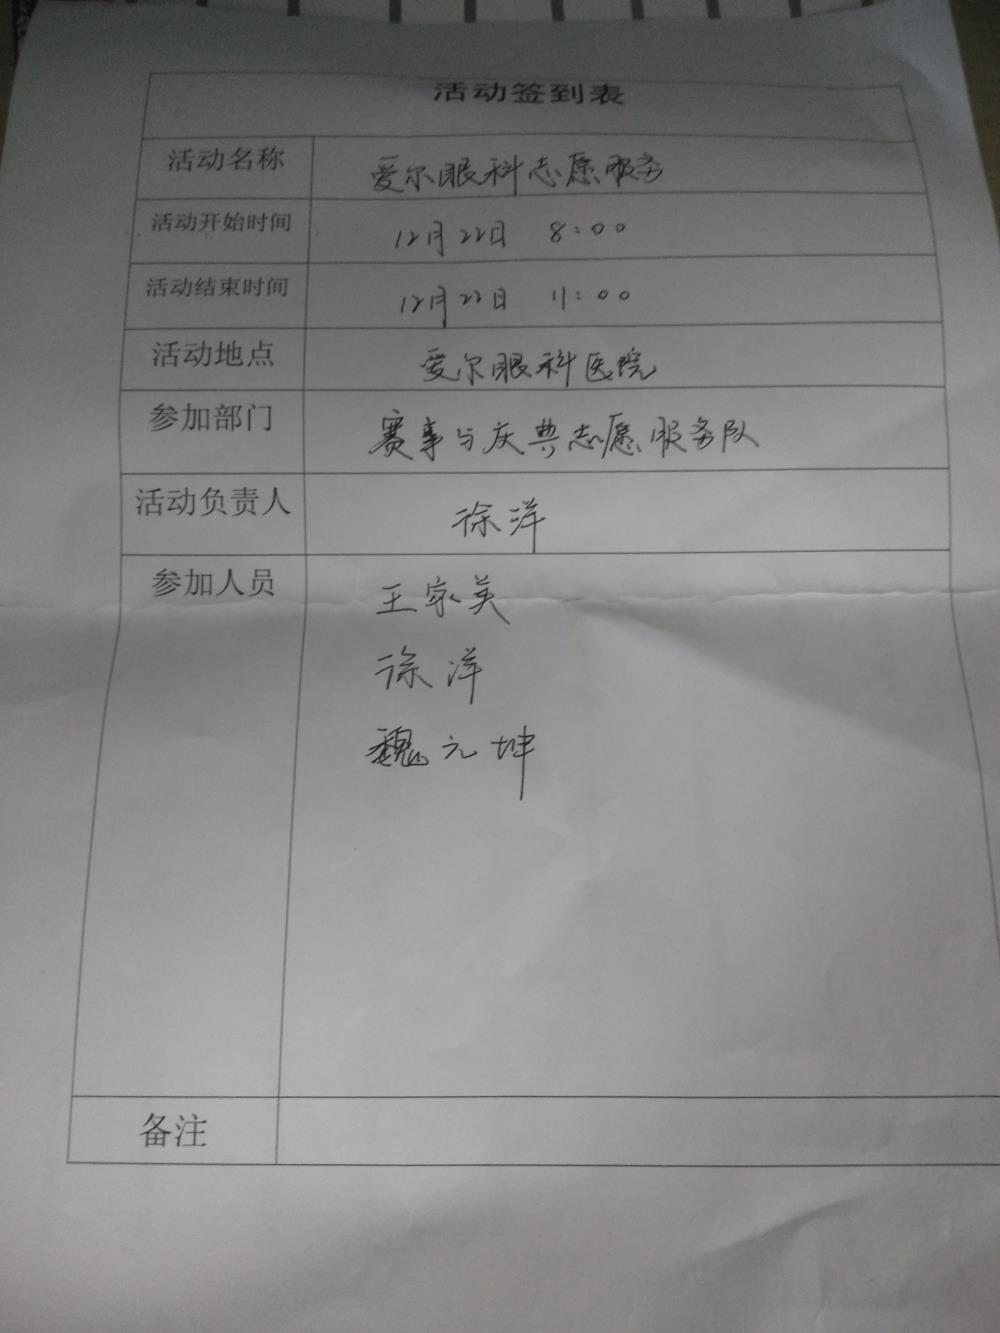 活动签到表
活动名称 爱尔眼科志愿服务
活动开始时间 12月22日 8:00
活动结束时间 12月22日 11:00
活动地点 爱尔眼科医院
参加部门 赛事与庆典志愿服务队
活动负责人 徐洋
参加人员 王家美
徐洋
魏元坤
备注